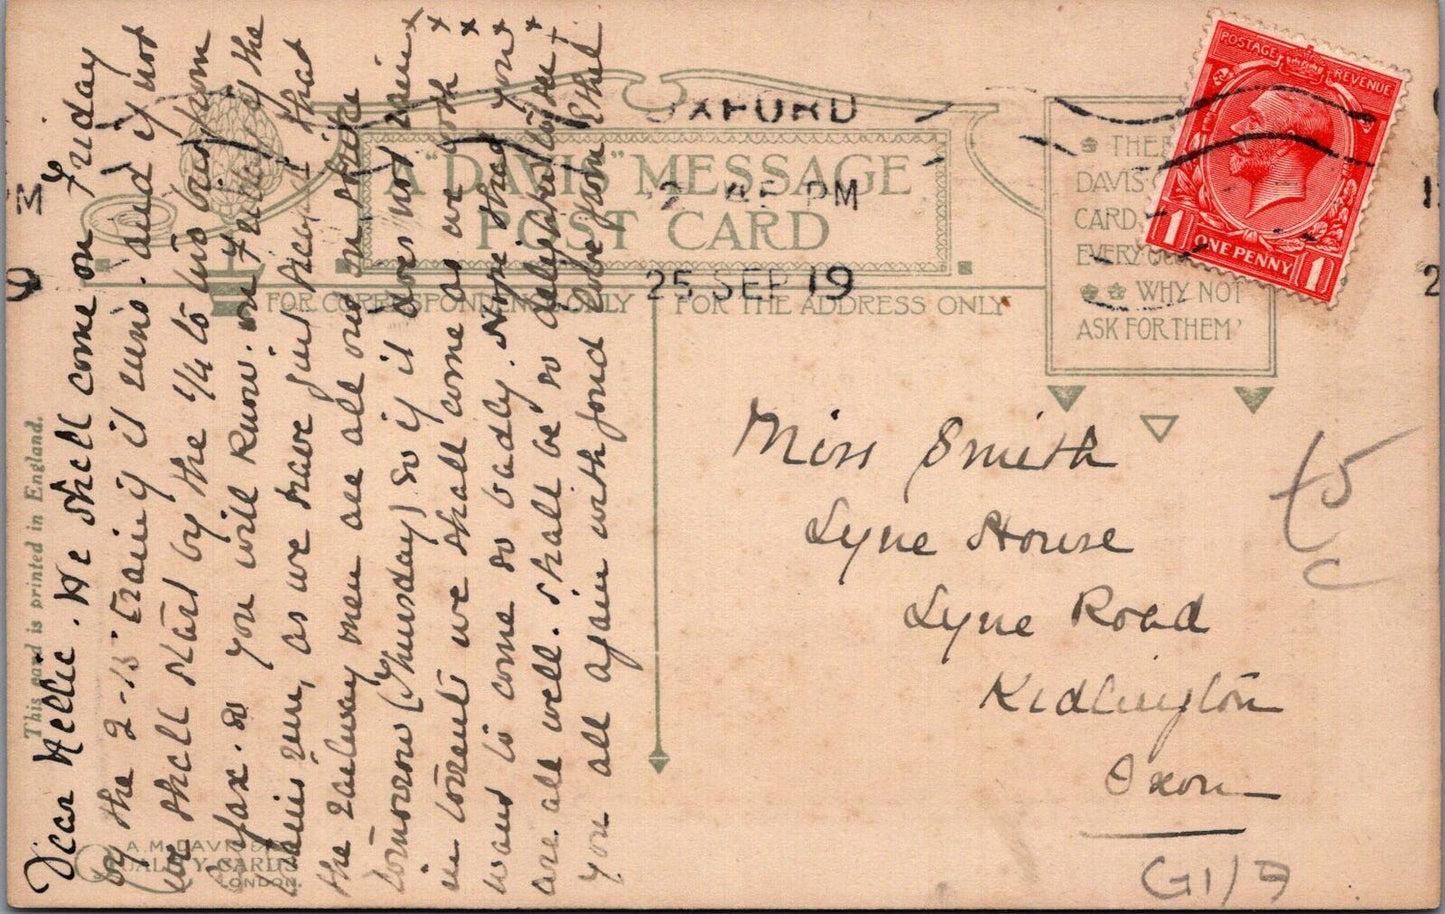 Dear Nellie. We shall come on Friday
by the 2-15 train if it runs. and if not
we shall start by the 1/4 to bus from
so you will know. on Friday if the
trains run, as we have just that
the railway men are all out on strike
tomorrow (Thursday) so if it does not rain
in torrents we shall come as we both
want to come so badly. Hope that you
are all well. shall be so delighted to see
you all again with fond love from Ethel
x x x x x x
This card is printed in England.
A. M. DAVIS & Co
QUALITY CARDS
LONDON.
A "DAVIS" MESSAGE
POST CARD
FOR CORRESPONDENCE ONLY
FOR THE ADDRESS ONLY
OXFORD
PM
25 SEP 19
THE
DAVIS
CARD,
EVERY
WHY NOT
ASK FOR THEM?
POSTAGE REVENUE
1 ONE PENNY 1
Miss Smith
Lyne House
Lyne Road
Kidlington
Oxon
G1/9